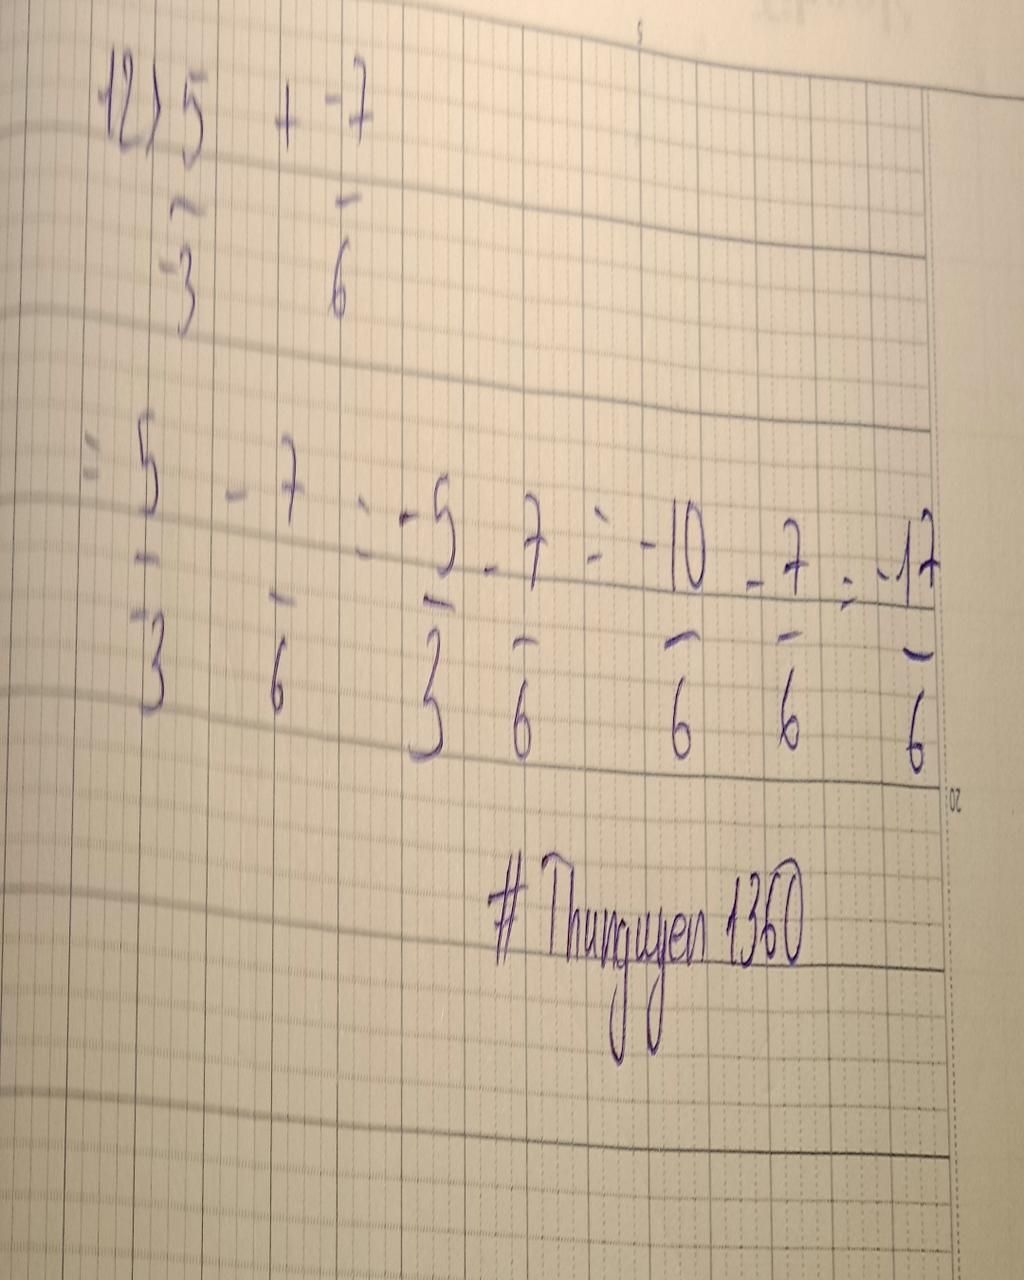 12) 5/-3 + -7/6
= 5/-3 - 7/6 = -5/3 - 7/6 = -10/6 - 7/6 = -17/6
# Thunguyen 1360
20
5